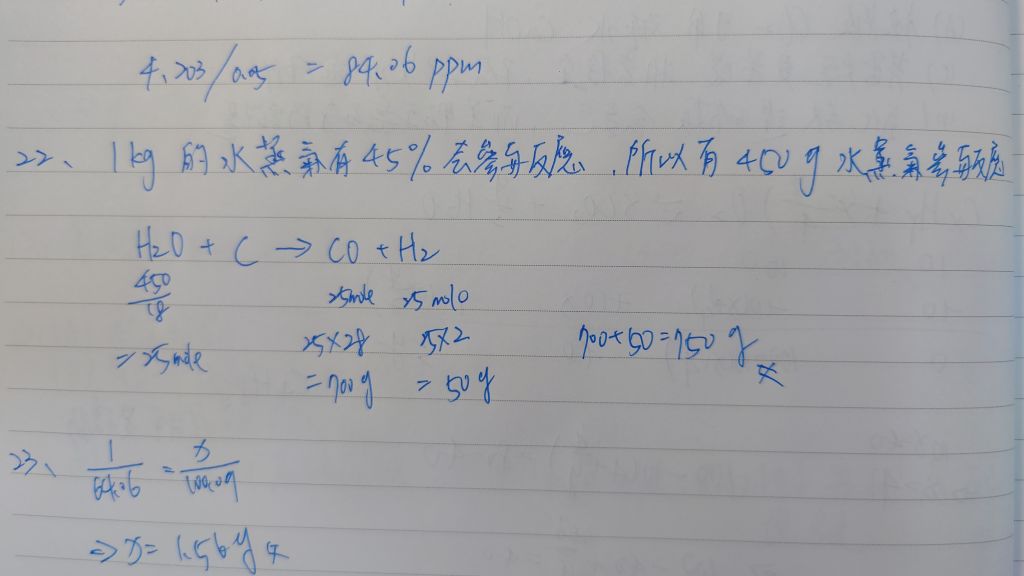 4.203/0.05 = 84.06 ppm
22、 1kg 的水蒸氣有45%去參與反應,所以有450g水蒸氣參與反應
H2O + C → CO + H2
450/18 25mole 25mole
= 25mole 25×28 25×2 700+50=750g
=700g = 50g
23、 1/64.06 = x/100.09
⇒ x = 1.56g